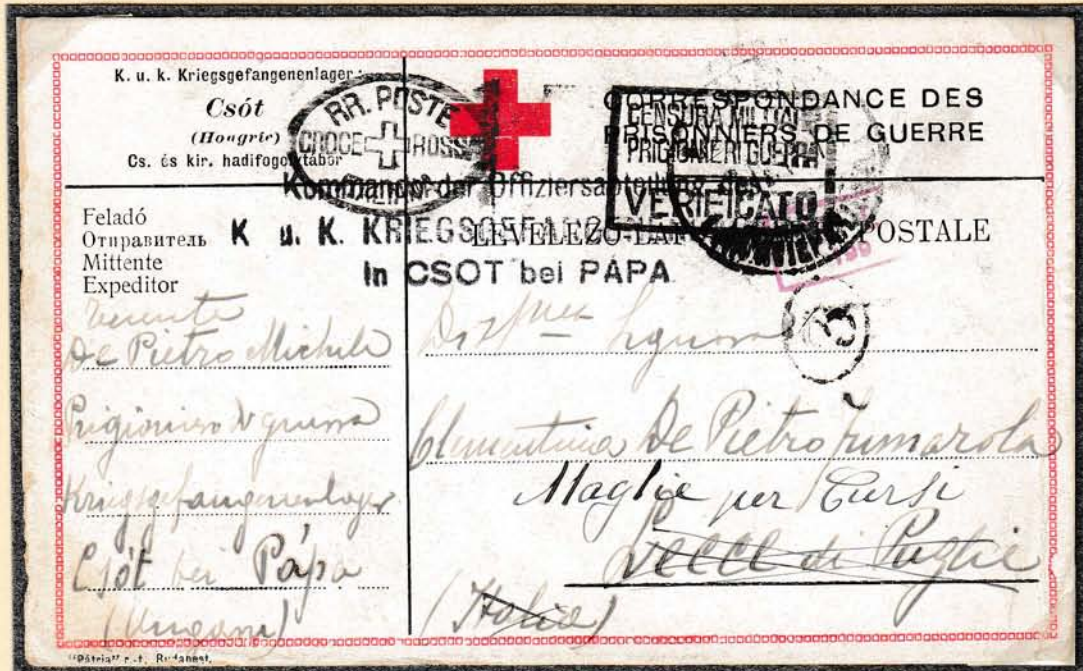 K. u. k. Kriegsgefangenenlager:
Csót
(Hongrie)
Cs. és kir. hadifogolytábor
RR. POSTE
CROCE ROSSA
CORRESPONDANCE DES
PRISONNIERS DE GUERRE
CENSURA MILITARE
PRIGIONIERI GUERRA
VERIFICATO
Kommando der Offiziersabteilung des
K u. K. KRIEGSGEFANG
in CSOT bei PÁPA
LEVELEZŐ-LAP POSTALE
Feladó
Отправитель
Mittente
Expeditor
De Pietro Michele
Prigioniero di guerra
Kriegsgefangenenlager
Csót bei Pápa
(Ungaria)
Signora
Clementina De Pietro
Maglie per Cursi
Lecce di Puglie
(Italia)
"Pátria" r.-t. Budapest.